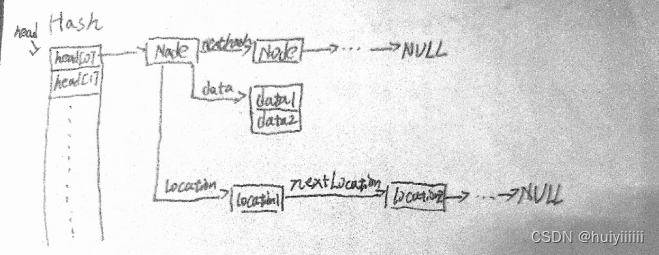 head Hash
head[0] Node nexthash Node ... NULL
head[1]
data data1
data2
Location Location1 nextLocation Location2 ... NULL
CSDN @huiyiiiiii